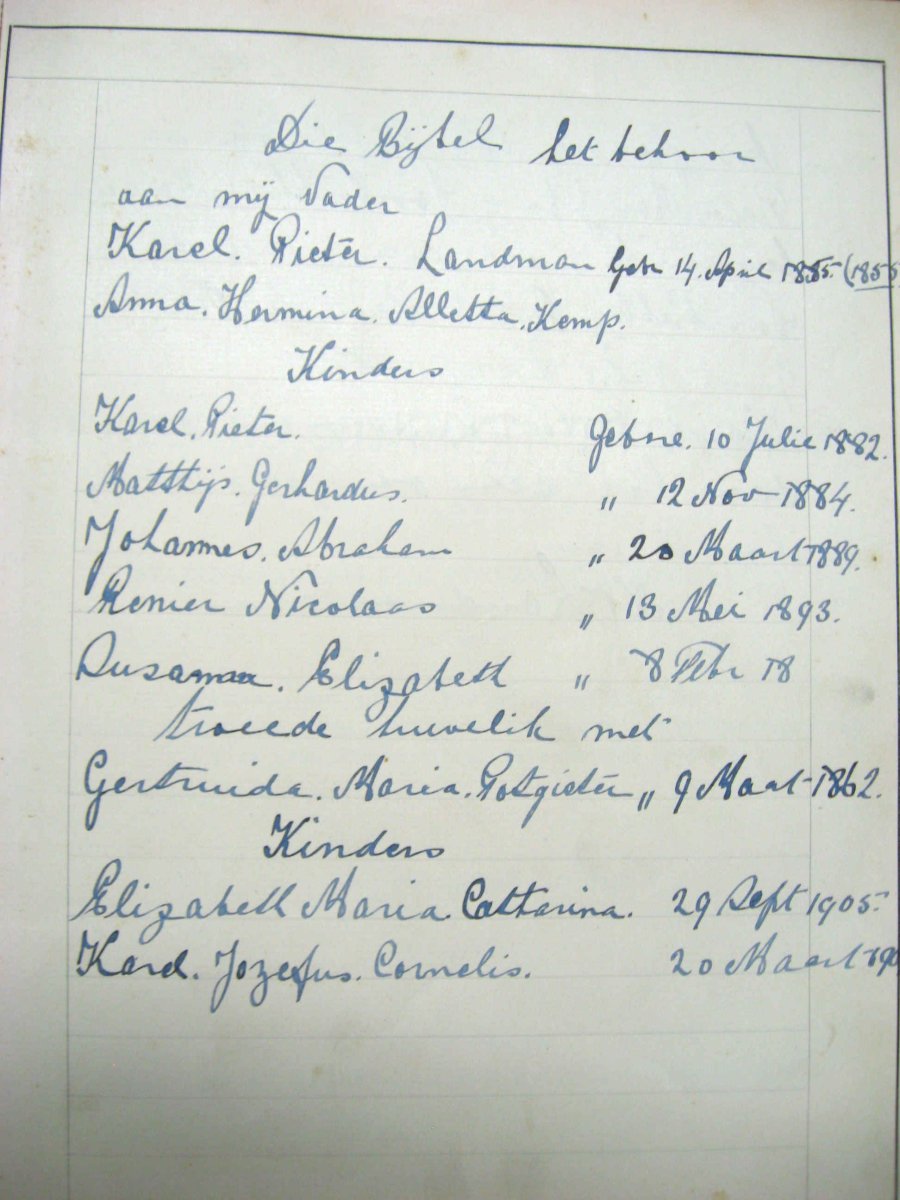 Die Bijbel het behoor
aan mij Vader
Karel. Pieter. Landman Gebr 14. April 1855. (1855
Anna. Hermina. Alletta. Kemp.
Kinders
Karel. Pieter. Gebore. 10 Julie 1882.
Matthijs. Gerhardus. " 12 Nov 1884.
Johannes. Abraham " 20 Maart 1889.
Renier Nicolaas " 13 Mei 1893.
Susanna. Elizabeth " 8 Febr 18
tweede huwelik met
Gertruida. Maria. Potgieter " 9 Maart 1862.
Kinders
Elizabeth Maria Catharina. 29 Sept 1905.
Karel. Jozefus. Cornelis. 20 Maart